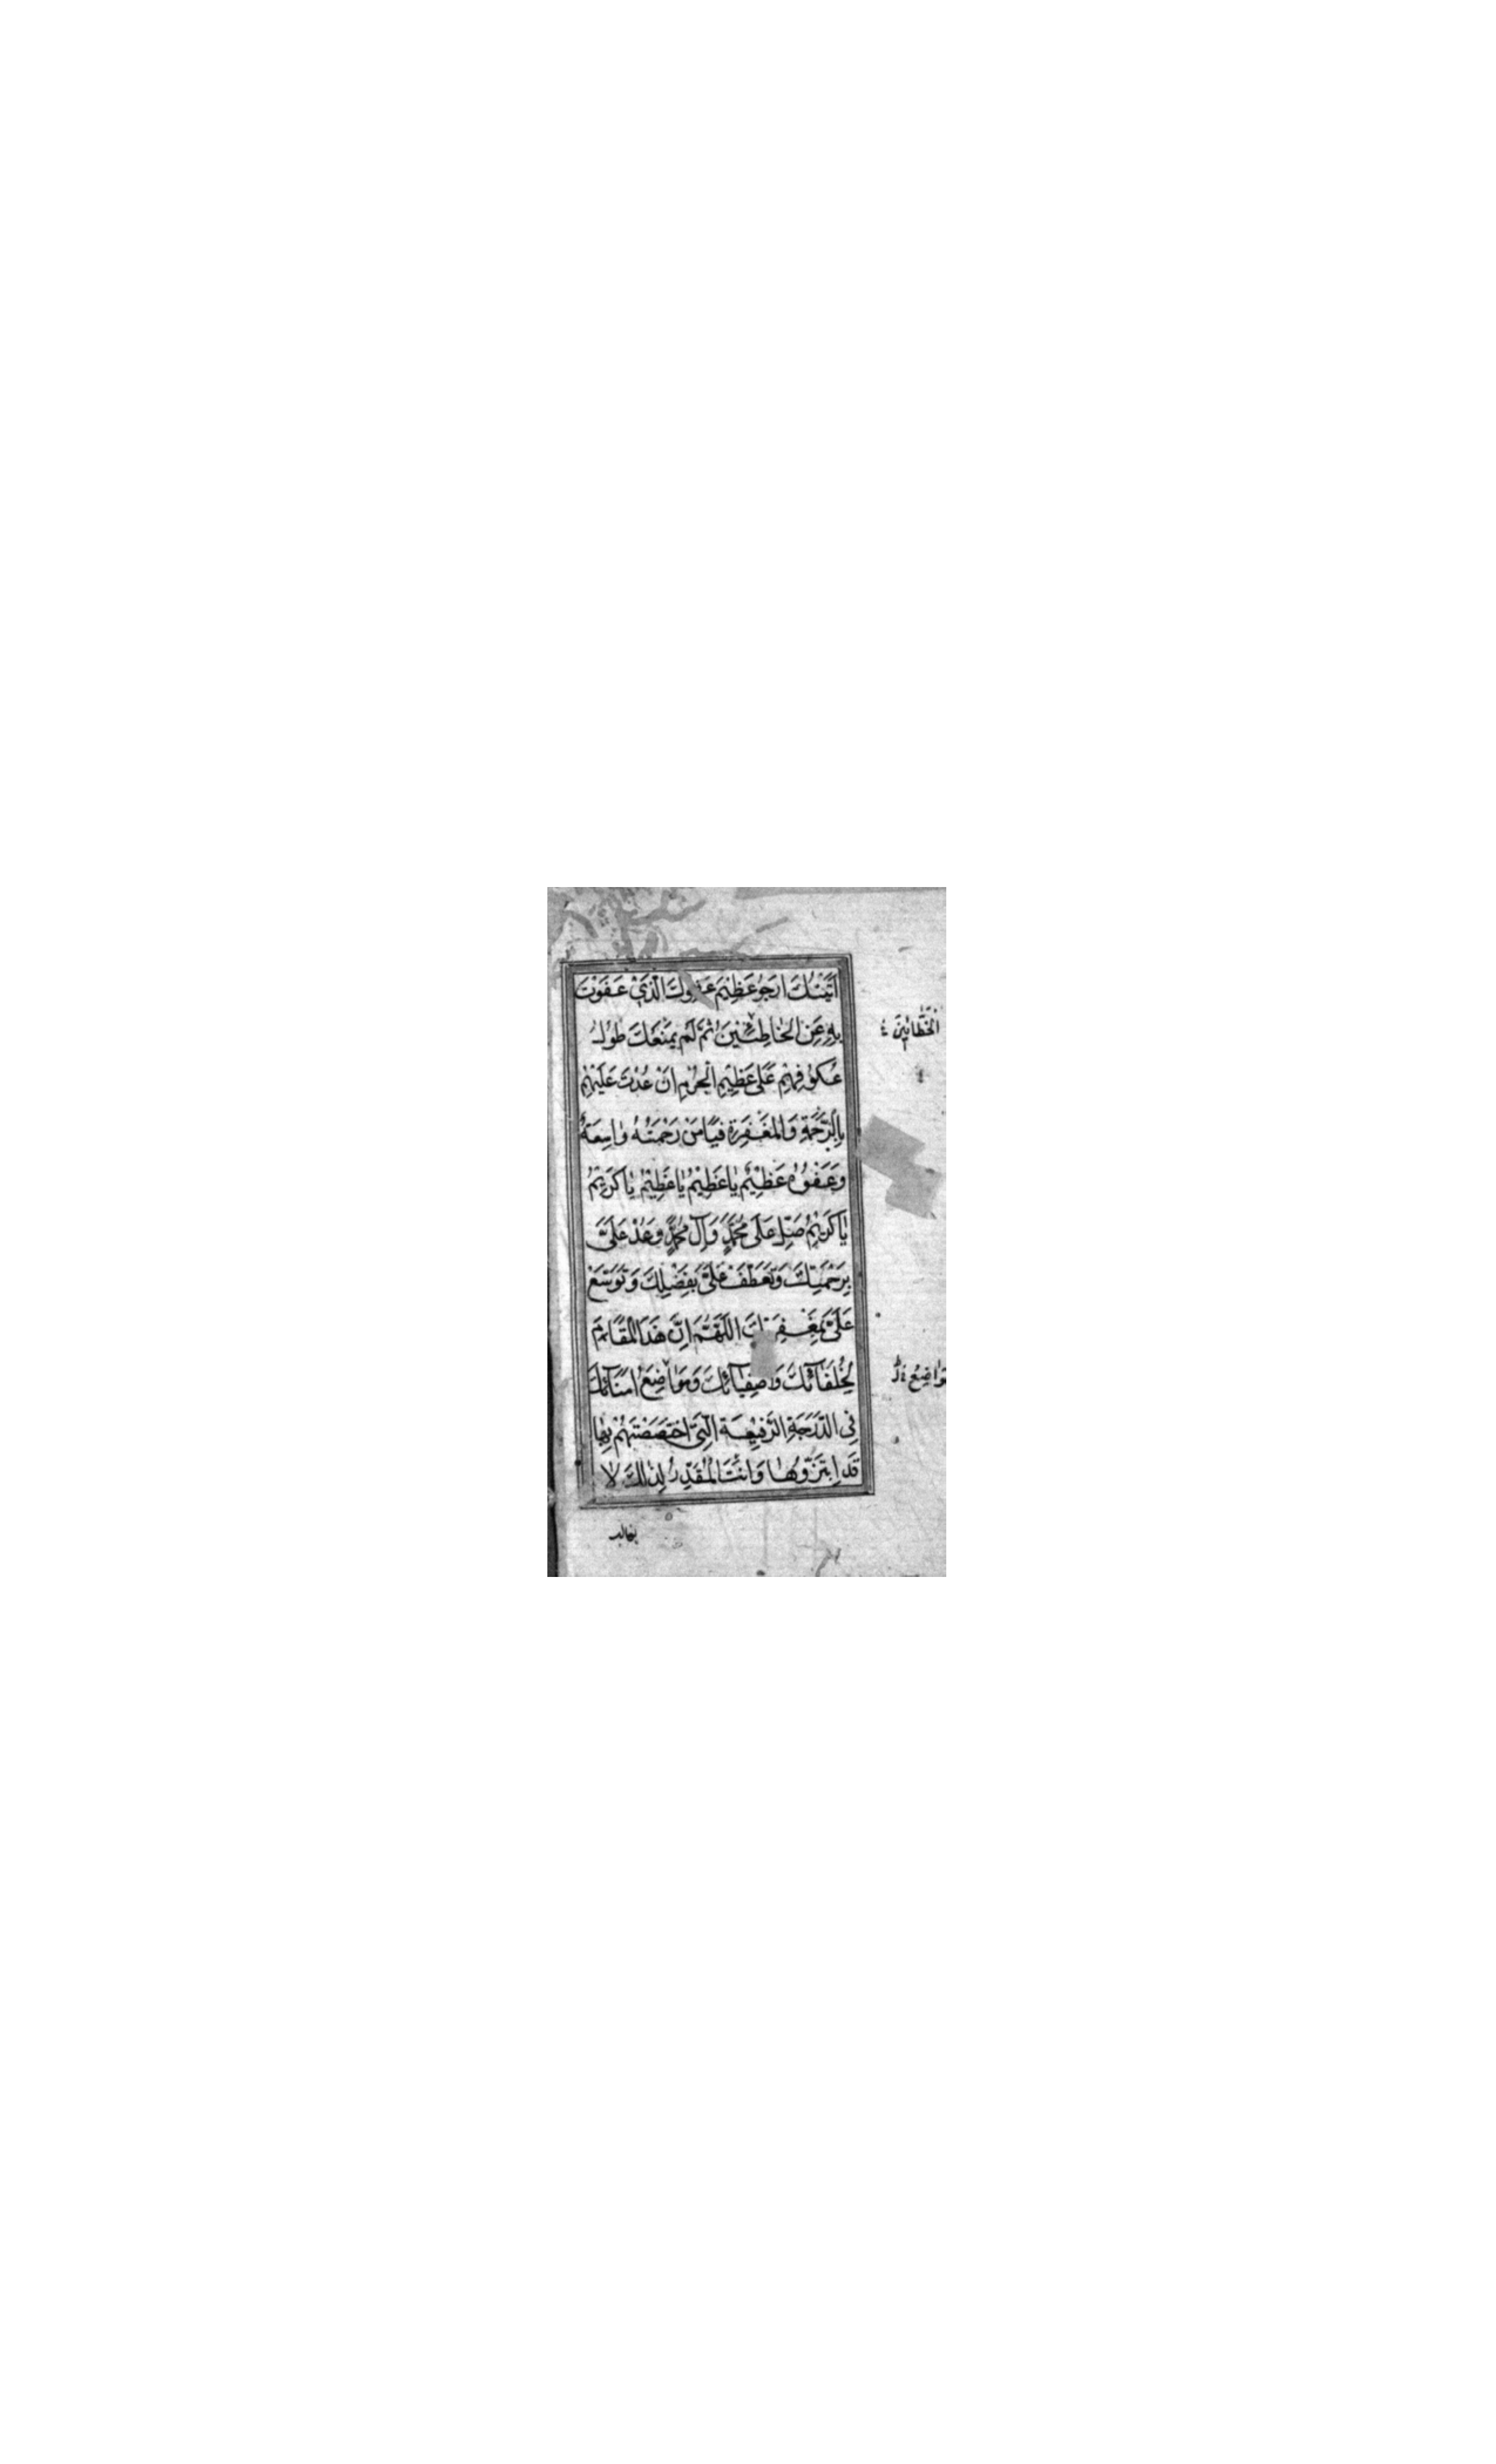 اَتَيْتُكَ اَرْجُو عَظِيْمَ عَفْوِكَ الَّذِيْ عَفَوْتَ
بِهٖ عَنِ الْخَاطِئِيْنَ ثُمَّ لَمْ يَمْنَعْكَ طُوْلُ
عُكُوْفِهِمْ عَلٰى عَظِيْمِ الْجُرْمِ اَنْ عُدْتَ عَلَيْهِمْ
بِالرَّحْمَةِ وَالْمَغْفِرَةِ فَيَا مَنْ رَحْمَتُهُ وَاسِعَةٌ
وَعَفْوُهُ عَظِيْمٌ يَا عَظِيْمُ يَا عَظِيْمُ يَا كَرِيْمُ
يَا كَرِيْمُ صَلِّ عَلٰى مُحَمَّدٍ وَآلِ مُحَمَّدٍ وَعُدْ عَلَيَّ
بِرَحْمَتِكَ وَتَعَطَّفْ عَلَيَّ بِفَضْلِكَ وَتَوَسَّعْ
عَلَيَّ بِمَغْفِرَتِكَ اَللّٰهُمَّ اِنَّ هٰذَا الْمَقَامَ
لِخُلَفَآئِكَ وَاَصْفِيَآئِكَ وَمَوَاضِعَ اُمَنَآئِكَ
فِي الدَّرَجَةِ الرَّفِيْعَةِ الَّتِي اخْتَصَصْتَهُمْ بِهَا
قَدِ ابْتَزُّوْهَا وَاَنْتَ الْمُقَدِّرُ لِذٰلِكَ لَا
يغالب
الْخَطَّائِيْنَ
مَوَاضِعُ